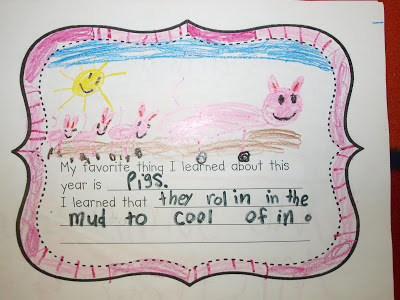 My favorite thing I learned about this
year is pigs.
I learned that they rol in in the
mud to cool of in.